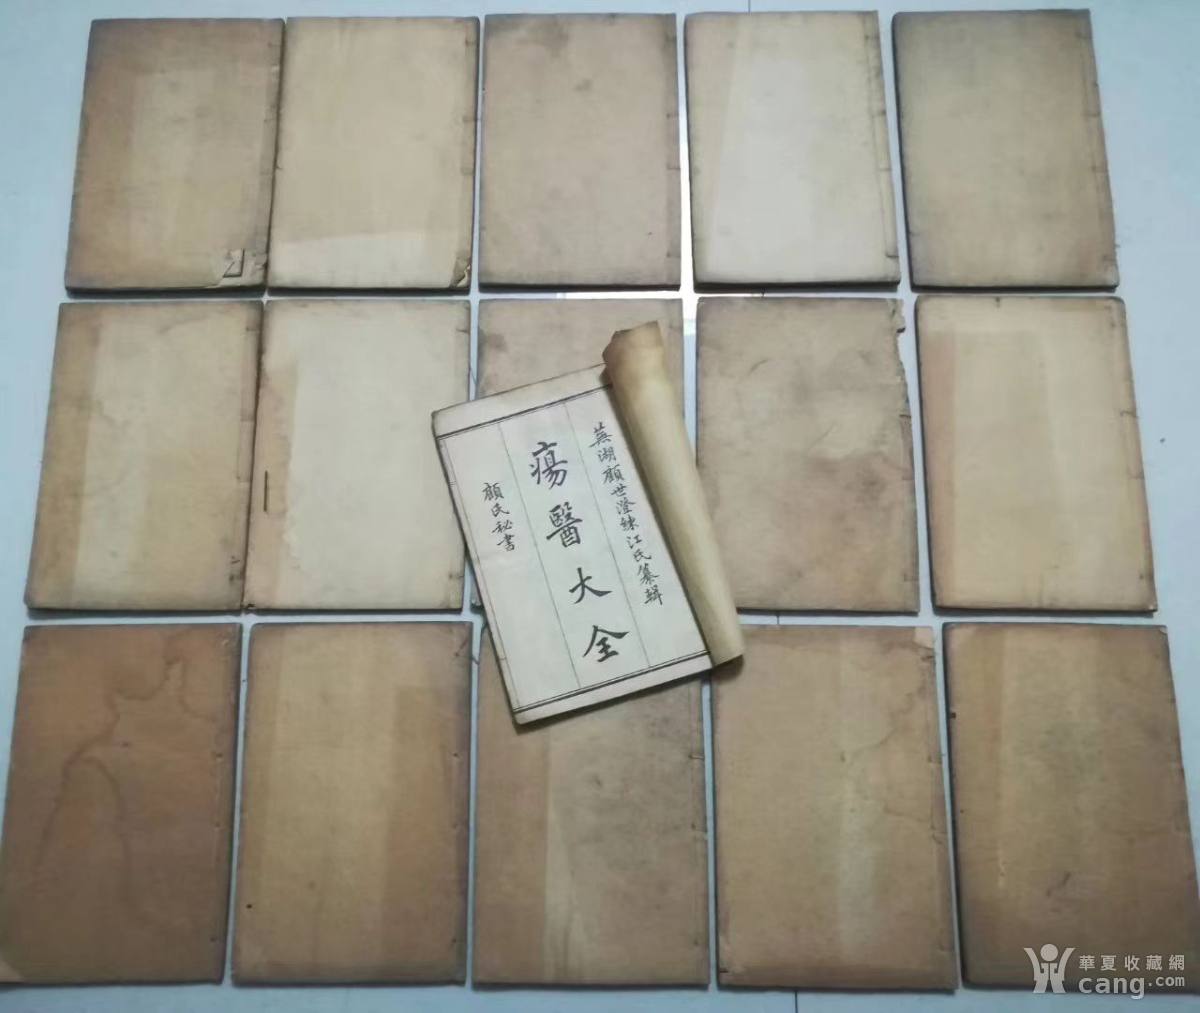 蕪湖顧世澄練江氏纂輯
瘍醫大全
顧氏秘書
華夏收藏網
cang.com